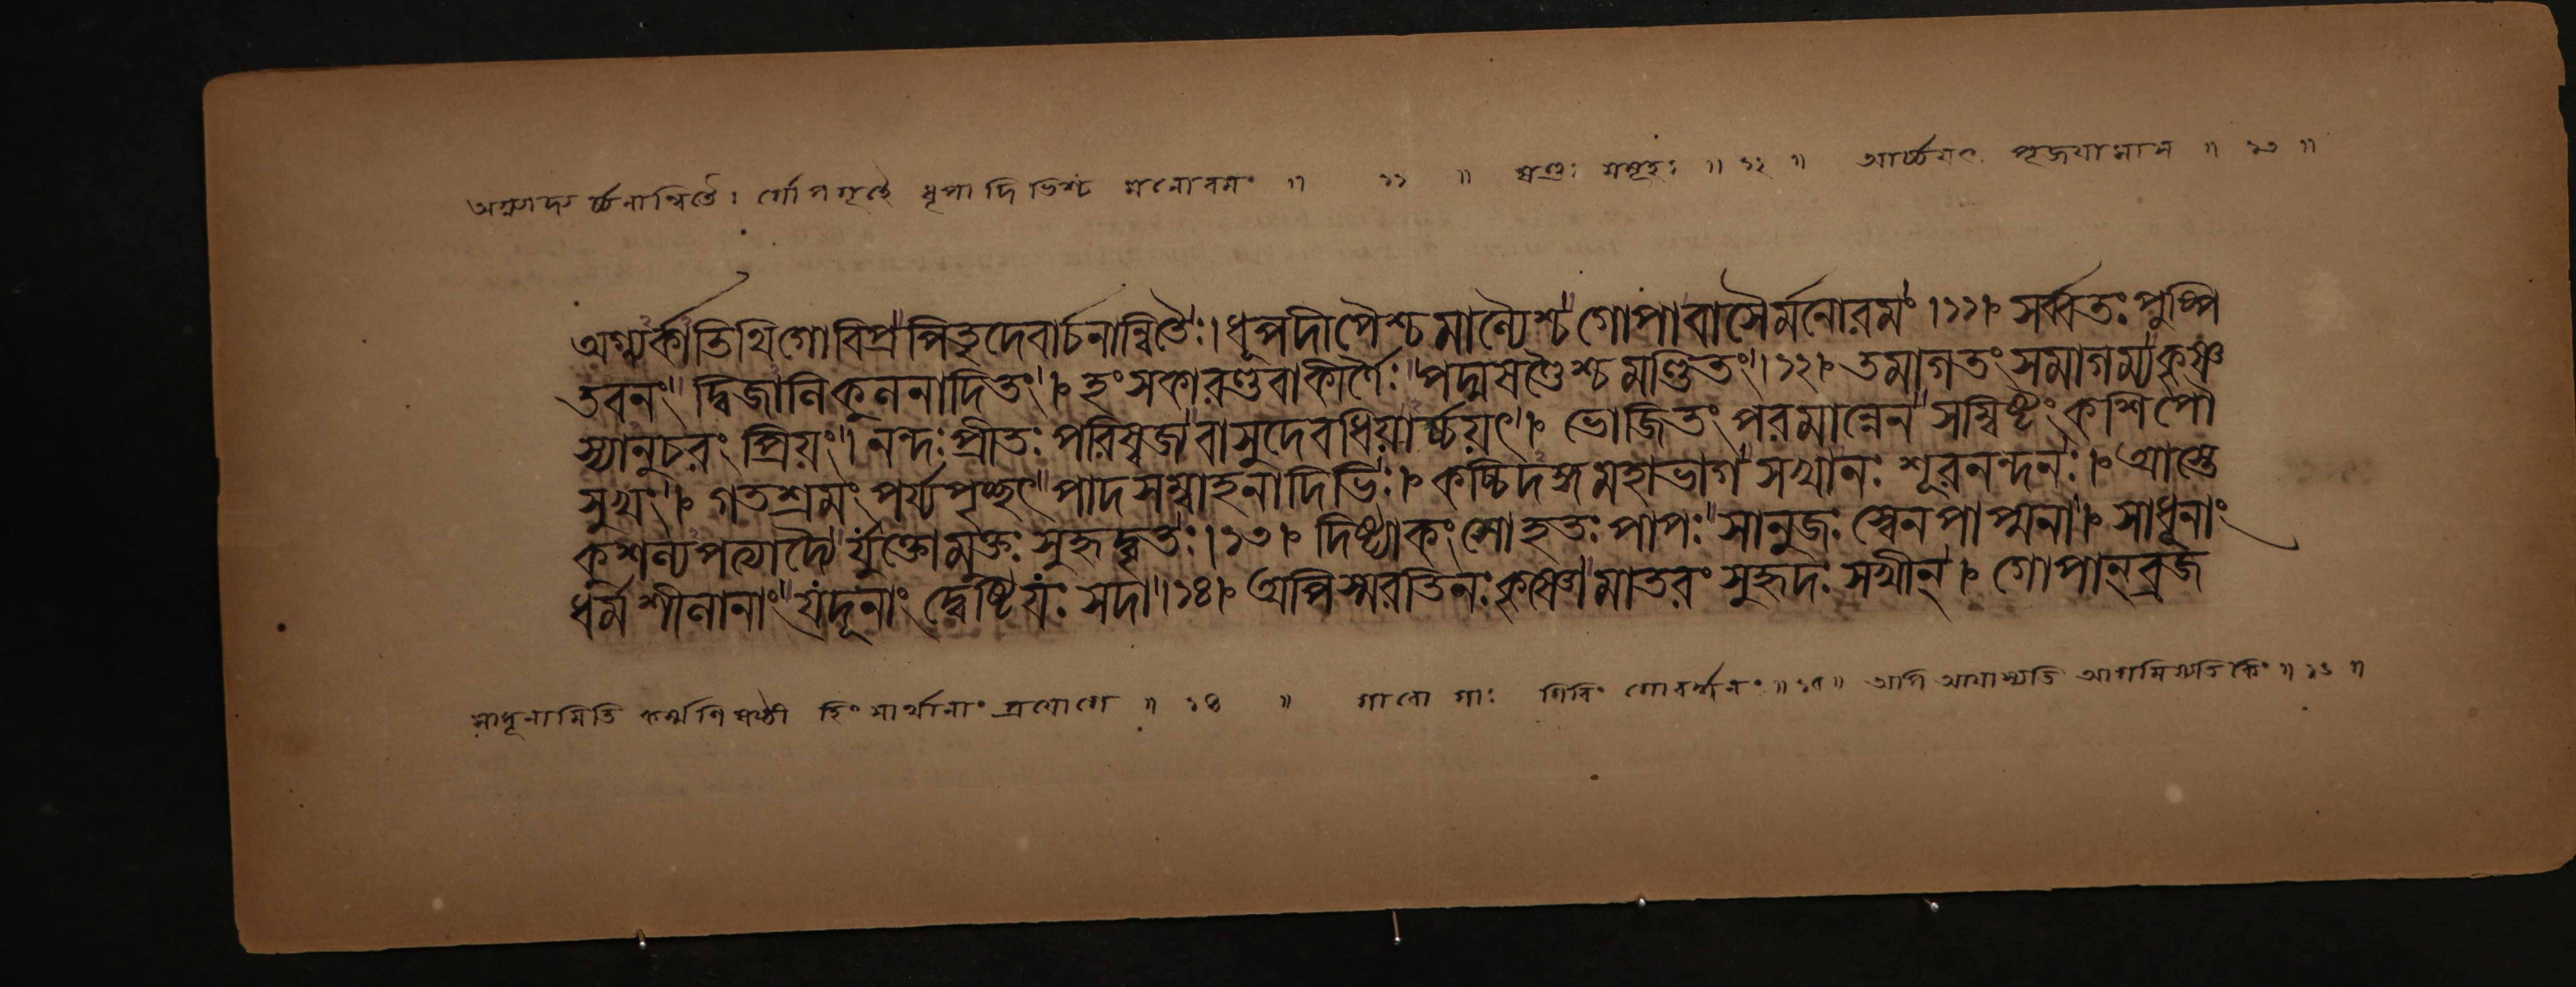 অগ্ন্যাদ্যর্চ্চনান্বিতৈঃ গোপগৃহৈ ধূপাদিভিশ্চ মনোরমং ॥ ১১ ॥ ষণ্ডঃ সমূহঃ ॥ ১২ ॥ আর্চ্চয়ৎ পূজয়ামাস ॥ ১৩ ॥
অগ্ন্যর্কাতিথিগোবিপ্রপিতৃদেবার্চনান্বিতৈঃ। ধূপদীপৈশ্চমাল্যৈশ্চ গোপাবাসৈর্মনোরমং।১১। সর্ব্বতঃ পুষ্পি
তবনং দ্বিজালিকুলনাদিতং। হংসকারণ্ডবাকীর্ণৈঃ পদ্মষণ্ডৈশ্চমণ্ডিতং।১২। তমাগতং সমাগম্যকৃষ্ণ
স্যানুচরং প্রিয়ং। নন্দঃ প্রীতঃ পরিষ্বজ্য বাসুদেবধিয়ার্চ্চয়ৎ। ভোজিতং পরমান্নেন সম্বিষ্টং কশিপৌ
সুখং। গতশ্রমং পর্য্যপৃচ্ছৎ পাদসম্বাহনাদিভিঃ। কচ্চিদঙ্গমহাভাগ সখানঃ শূরনন্দনঃ। আস্তে
কুশল্যপত্যাদ্যৈ র্যুক্তোমুক্তঃ সুহৃদ্বৃতঃ।১৩। দিষ্ট্যাকংসোহতঃ পাপঃ সানুজঃ স্বেনপাপ্মনা। সাধূনাং
ধর্মশীলানাং যদূনাং দ্বেষ্টিযঃ সদা।১৪। অপিস্মরতিনঃ কৃষ্ণো মাতরং সুহৃদঃ সখীন্। গোপান্ ব্রজ
সাধূনামিতি কর্ম্মণি ষষ্ঠী হিংসার্থানাং প্রয়োগে ॥ ১৪ ॥ গাবো গাঃ গিরিং গোবর্দ্ধনং ॥ ১৫ ॥ অপি আয়াস্যতি আগমিষ্যতি কিং ॥ ১৬ ॥